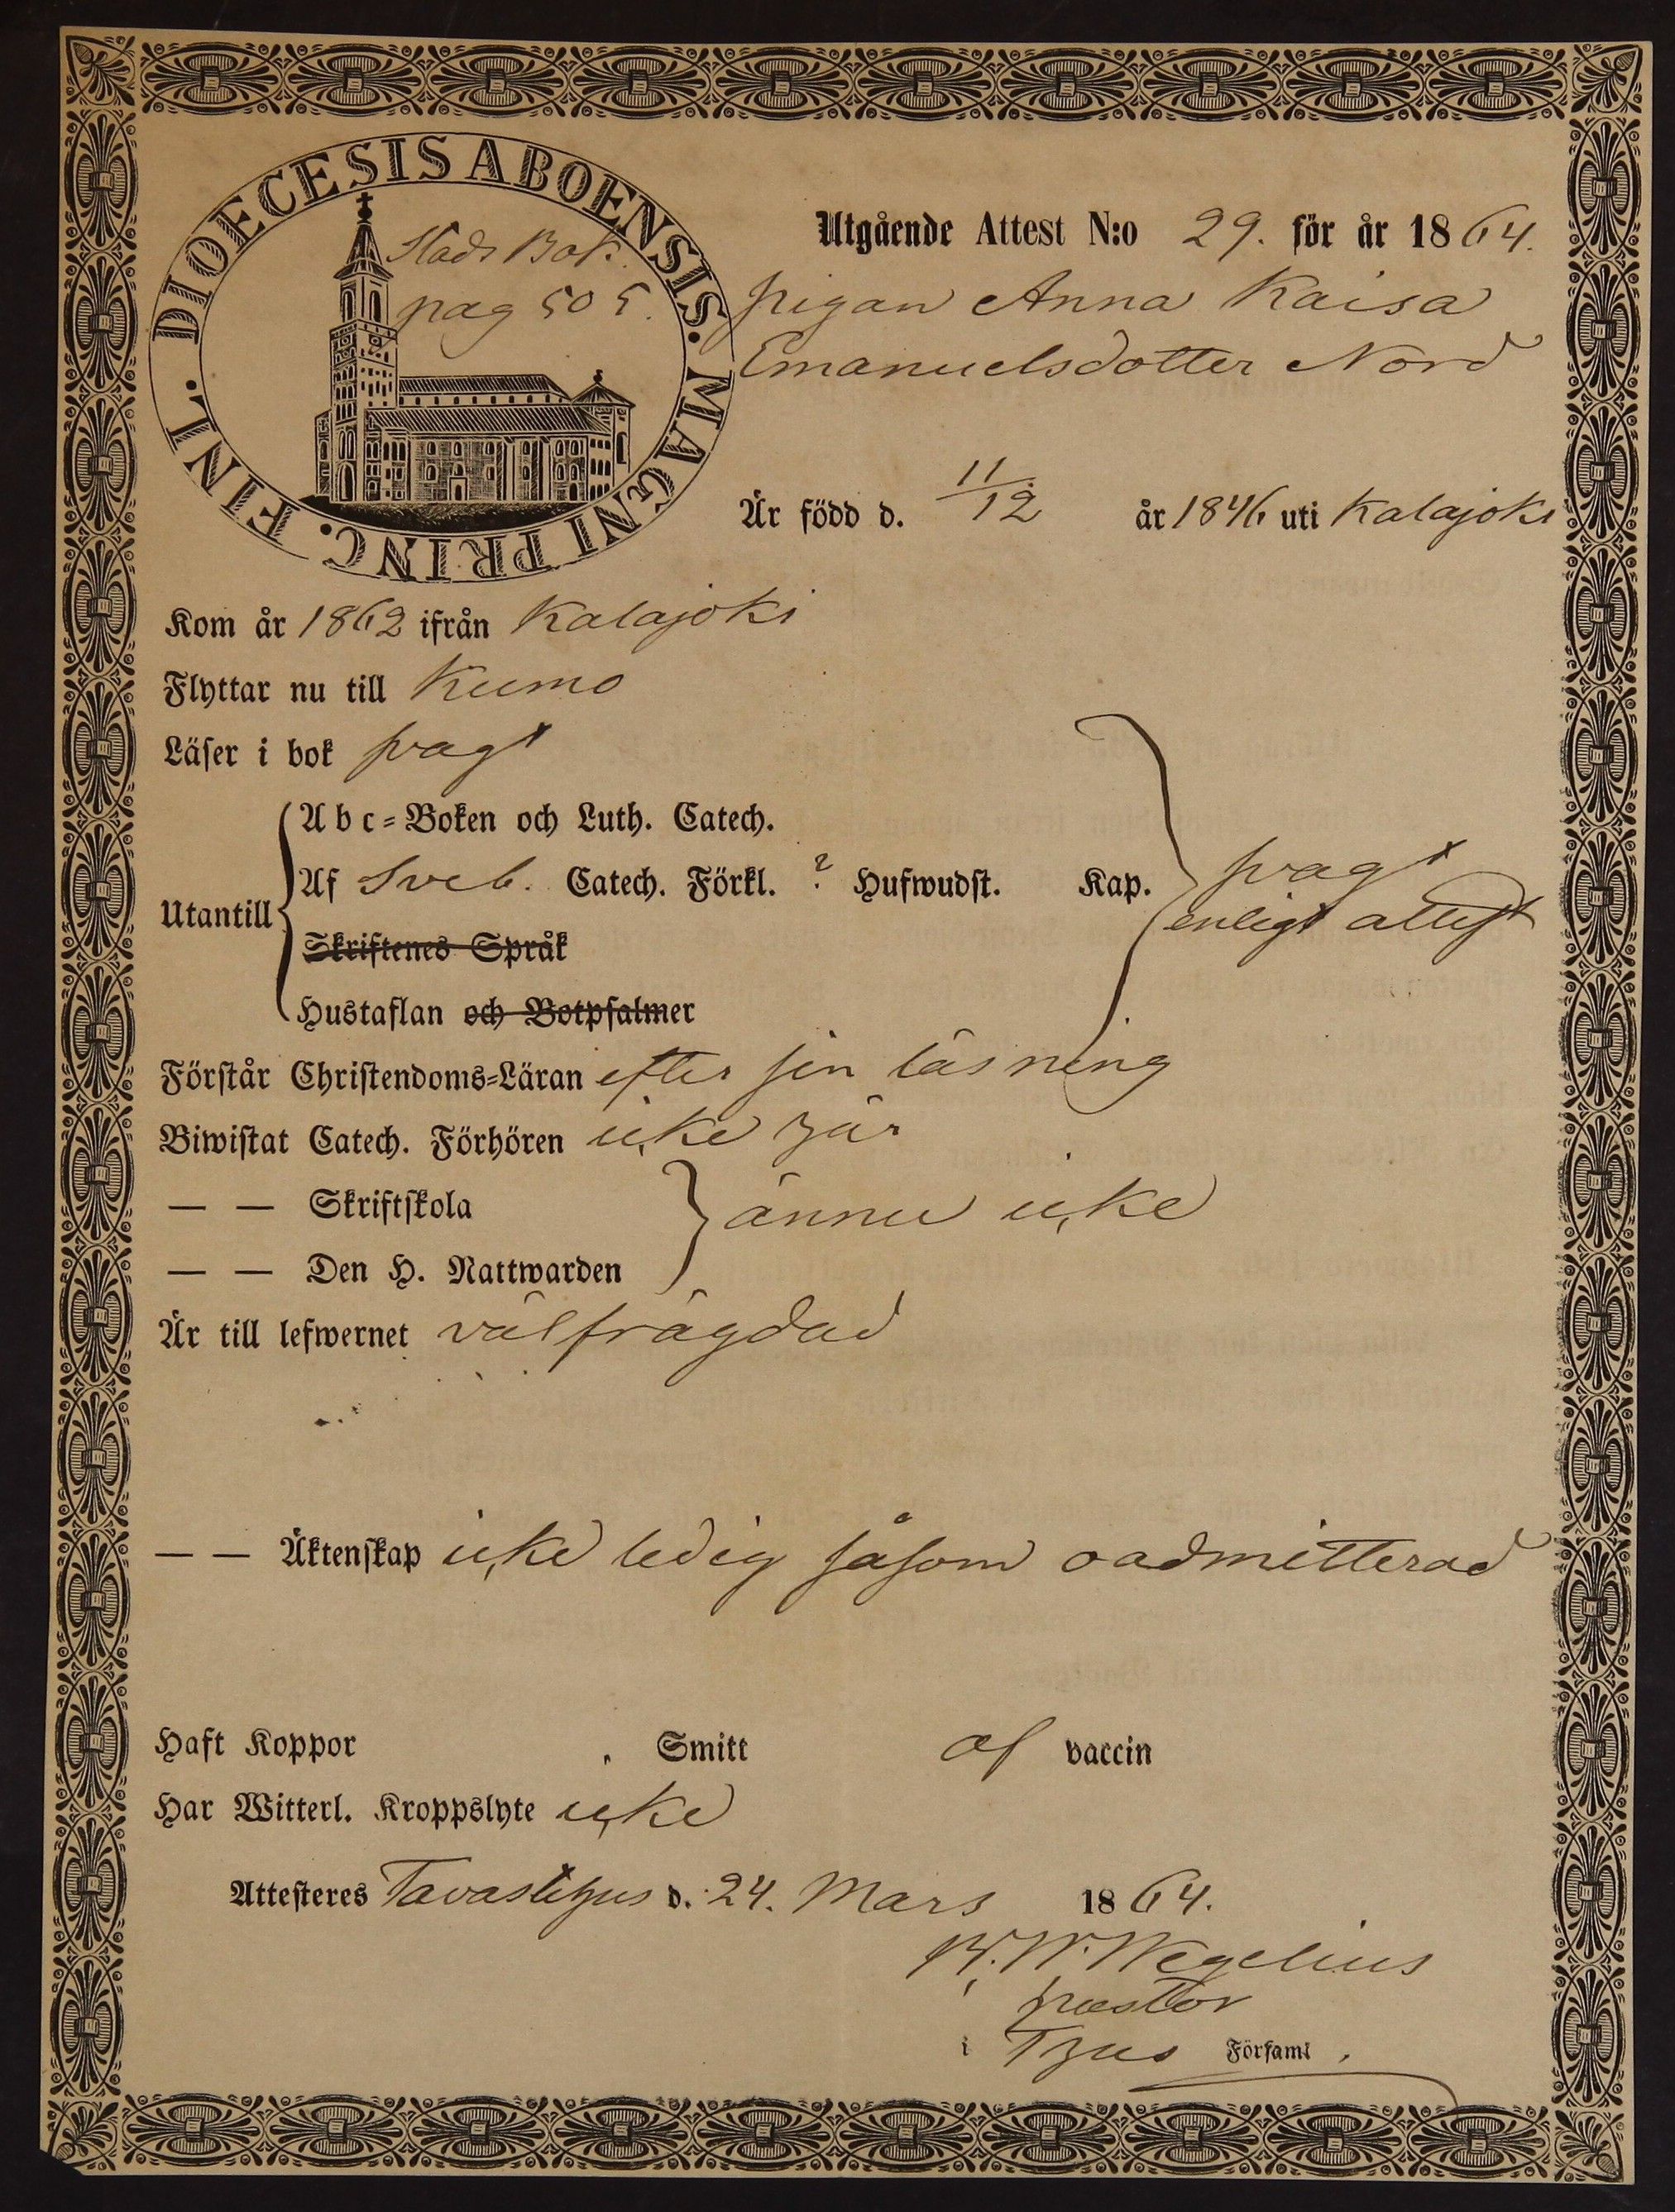 DIOECESIS ABOENSIS. MAGNI PRINC. FINL.
Stads Bok.
pag 505.
Utgående Attest N:o 29. för år 1864.
pigan Anna Kaisa
Emanuelsdotter Nord
Är född d. 11/12 år 1846 uti Kalajoki
Kom år 1862 ifrån Kalajoki
Flyttar nu till Kumo
Läser i bok svagt
Utantill
Abc=Boken och Luth. Catech.
Af Sveb. Catech. Förkl. ? Hufwudst. Kap. svagt
enligt attest
Skriftenes Språk
Hustaflan och Botpsalmer
Förstår Christendoms=Läran efter sin läsning
Biwistat Catech. Förhören icke här
— — Skriftskola
ännu icke
— — Den H. Nattwarden
Är till lefwernet välfrägdad
— — Äktenskap icke ledig såsom oadmitterad
Haft Koppor , Smitt af vaccin
Har Witterl. Kroppslyte icke
Attesteres Tavastehus d. 24. Mars 1864.
Wegelius
pastor
i Thus Församl.